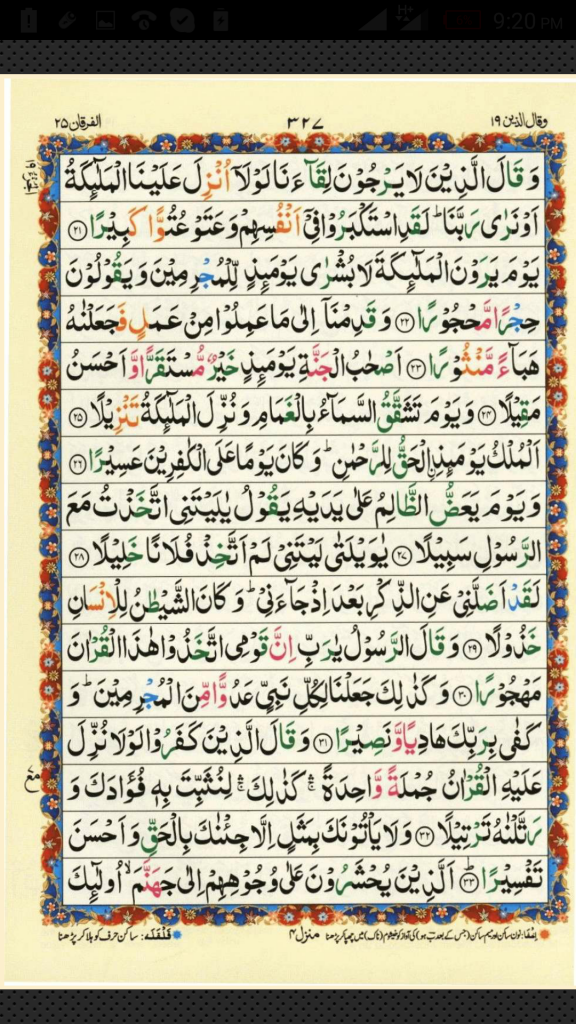 9:20 PM
وقال الذین ۱۹
۳۲۷
الفرقان ۲۵
وَ قَالَ الَّذِیْنَ لَا یَرْجُوْنَ لِقَآءَنَا لَوْلَاۤ اُنْزِلَ عَلَیْنَا الْمَلٰٓىِٕكَةُ
اَوْ نَرٰی رَبَّنَا ؕ لَقَدِ اسْتَكْبَرُوْا فِیْۤ اَنْفُسِهِمْ وَ عَتَوْ عُتُوًّا كَبِیْرًا ﴿۲۱﴾
یَوْمَ یَرَوْنَ الْمَلٰٓىِٕكَةَ لَا بُشْرٰی یَوْمَىِٕذٍ لِّلْمُجْرِمِیْنَ وَ یَقُوْلُوْنَ
حِجْرًا مَّحْجُوْرًا ﴿۲۲﴾ وَ قَدِمْنَاۤ اِلٰی مَا عَمِلُوْا مِنْ عَمَلٍ فَجَعَلْنٰهُ
هَبَآءً مَّنْثُوْرًا ﴿۲۳﴾ اَصْحٰبُ الْجَنَّةِ یَوْمَىِٕذٍ خَیْرٌ مُّسْتَقَرًّا وَّ اَحْسَنُ
مَقِیْلًا ﴿۲۴﴾ وَ یَوْمَ تَشَقَّقُ السَّمَآءُ بِالْغَمَامِ وَ نُزِّلَ الْمَلٰٓىِٕكَةُ تَنْزِیْلًا ﴿۲۵﴾
اَلْمُلْكُ یَوْمَىِٕذِ ِ۟الْحَقُّ لِلرَّحْمٰنِ ؕ وَ كَانَ یَوْمًا عَلَی الْكٰفِرِیْنَ عَسِیْرًا ﴿۲۶﴾
وَ یَوْمَ یَعَضُّ الظَّالِمُ عَلٰی یَدَیْهِ یَقُوْلُ یٰلَیْتَنِی اتَّخَذْتُ مَعَ
الرَّسُوْلِ سَبِیْلًا ﴿۲۷﴾ یٰوَیْلَتٰی لَیْتَنِیْ لَمْ اَتَّخِذْ فُلَانًا خَلِیْلًا ﴿۲۸﴾
لَقَدْ اَضَلَّنِیْ عَنِ الذِّكْرِ بَعْدَ اِذْ جَآءَنِیْ ؕ وَ كَانَ الشَّیْطٰنُ لِلْاِنْسَانِ
خَذُوْلًا ﴿۲۹﴾ وَ قَالَ الرَّسُوْلُ یٰرَبِّ اِنَّ قَوْمِی اتَّخَذُوْا هٰذَا الْقُرْاٰنَ
مَهْجُوْرًا ﴿۳۰﴾ وَ كَذٰلِكَ جَعَلْنَا لِكُلِّ نَبِیٍّ عَدُوًّا مِّنَ الْمُجْرِمِیْنَ ؕ وَ
كَفٰی بِرَبِّكَ هَادِیًا وَّ نَصِیْرًا ﴿۳۱﴾ وَ قَالَ الَّذِیْنَ كَفَرُوْا لَوْلَا نُزِّلَ
عَلَیْهِ الْقُرْاٰنُ جُمْلَةً وَّاحِدَةً ۛۚ كَذٰلِكَ ۛۚ لِنُثَبِّتَ بِهٖ فُؤَادَكَ وَ
رَتَّلْنٰهُ تَرْتِیْلًا ﴿۳۲﴾ وَ لَا یَاْتُوْنَكَ بِمَثَلٍ اِلَّا جِئْنٰكَ بِالْحَقِّ وَ اَحْسَنَ
تَفْسِیْرًا ﴿۳۳﴾ اَلَّذِیْنَ یُحْشَرُوْنَ عَلٰی وُجُوْهِهِمْ اِلٰی جَهَنَّمَ ۙ اُولٰٓىِٕكَ
منزل ۴
قلقلہ: ساکن حرف کو ہلا کر پڑھنا